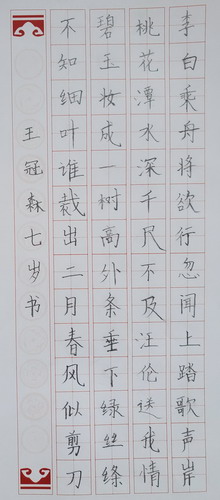 李白乘舟将欲行忽闻上踏歌声岸
桃花潭水深千尺不及汪伦送我情
碧玉妆成一树高外条垂下绿丝绦
不知细叶谁裁出二月春风似剪刀
王冠森七岁书